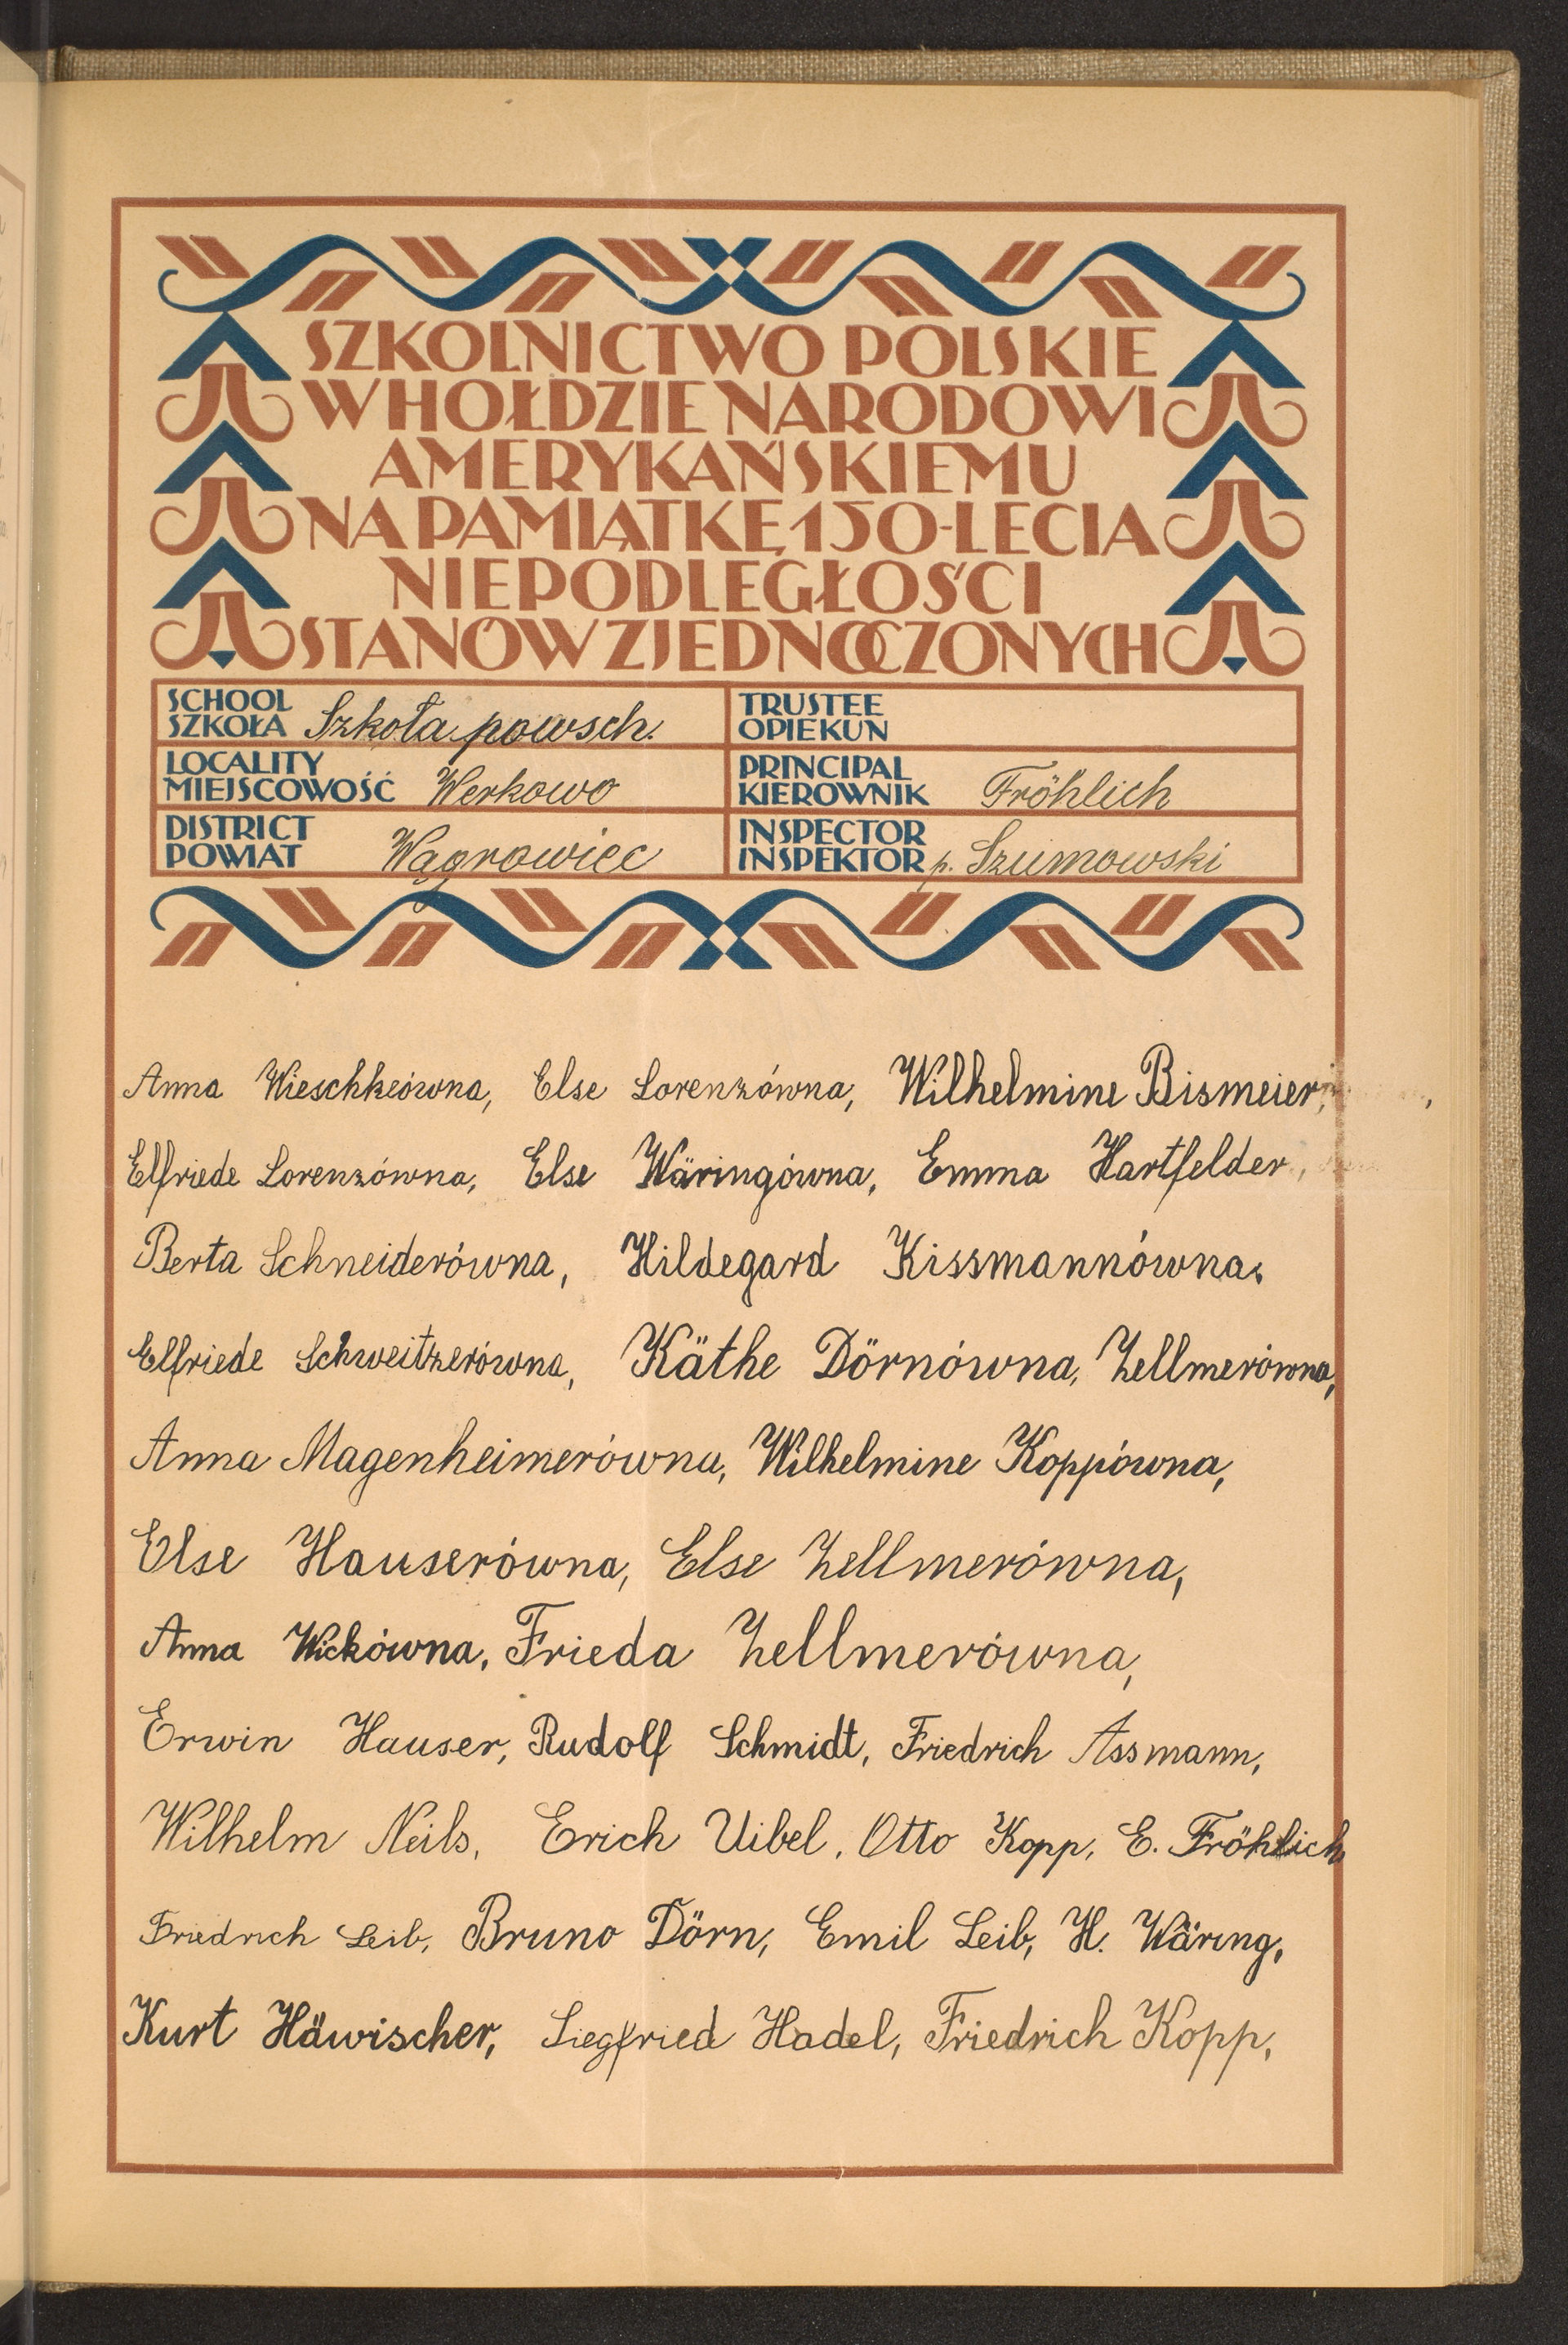 SZKOLNICTWO POLSKIE
W HOŁDZIE NARODOWI
AMERYKAŃSKIEMU
NA PAMIĄTKĘ 150-LECIA
NIEPODLEGŁOŚCI
STANÓW ZJEDNOCZONYCH
SCHOOL
SZKOŁA Szkoła powsch.
TRUSTEE
OPIEKUN
LOCALITY
MIEJSCOWOŚĆ Werkowo
PRINCIPAL
KIEROWNIK Fröhlich
DISTRICT
POWIAT Wągrowiec
INSPECTOR
INSPEKTOR p. Szumowski
Anna Wieschkeówna, Else Lorenzówna, Wilhelmine Bismeier,
Elfriede Lorenzówna, Else Wäringówna, Emma Hartfelder,
Berta Schneiderówna, Hildegard Kissmannówna,
Elfriede Schweitzerówna, Käthe Dörnówna, Zellmerówna,
Anna Magenheimerówna, Wilhelmine Koppówna,
Else Hauserówna, Else Zellmerówna,
Anna Wickówna, Frieda Zellmerówna,
Erwin Hauser, Rudolf Schmidt, Friedrich Assmann,
Wilhelm Neils, Erich Uibel, Otto Kopp, E. Fröhlich,
Friedrich Leib, Bruno Dörn, Emil Leib, H. Wäring,
Kurt Häwischer, Siegfried Hadel, Friedrich Kopp,